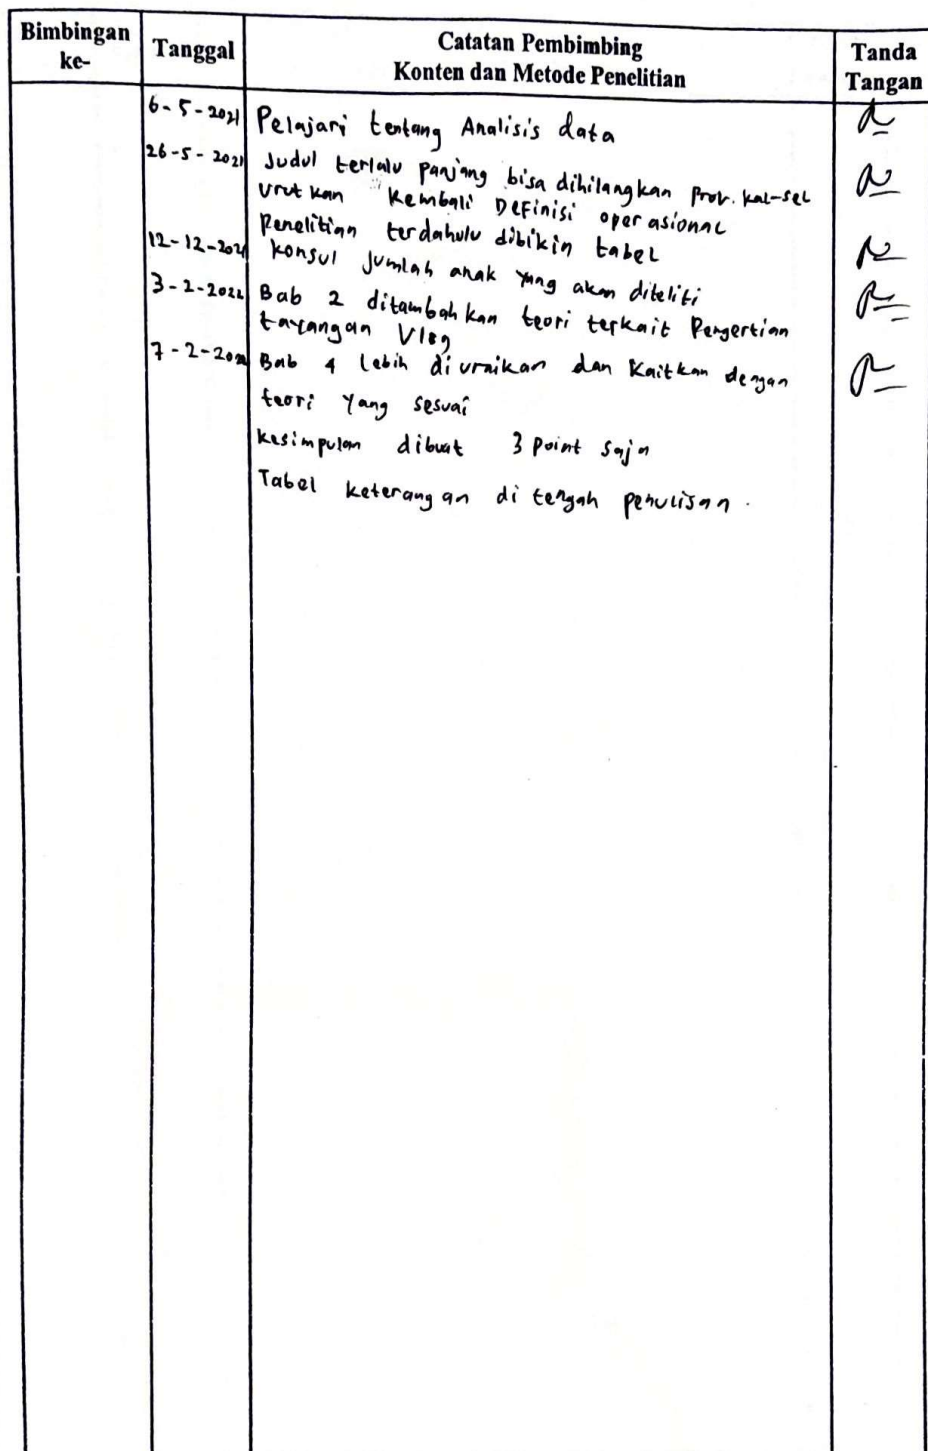 Bimbingan ke-
Tanggal
Catatan Pembimbing
Konten dan Metode Penelitian
Tanda Tangan
6-5-2021 Pelajari tentang Analisis data
26-5-2021 Judul terlalu panjang bisa dihilangkan Prov. kal-sel
Urutkan kembali Definisi operasional
Penelitian terdahulu dibikin tabel
12-12-2021 konsul jumlah anak yang akan diteliti
3-2-2022 Bab 2 ditambahkan teori terkait Pengertian
tayangan Vlog
7-2-2022 Bab 4 lebih diuraikan dan Kaitkan dengan
teori yang sesuai
kesimpulan dibuat 3 Point saja
Tabel keterangan di tengah penulisan.